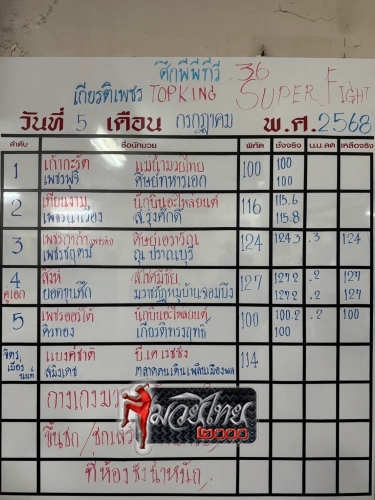 ศึกพีพีทีวี . 36
เกียรติเพชร TOPKING SUPER FIGHT
วันที่ 5 เดือน กรกฎาคม พ.ศ. 2568
ลำดับ ชื่อนักมวย พิกัด ชั่งจริง น.น.ลด เหลือจริง
1 เก้ากะรัต แม่น้ำมวยไทย 100 100
เพชรฟูจิ ศิษย์ทหารเอก 100
2 เทียนงาม นักบินอะไหล่ยนต์ 116 115.6
ส.รุ่งศักดิ์ 115.8
3 เพชรกาฬ ศิษย์เอราวัณ 124 124.3 .3 124
เพชรชฎุตม์ ณ ปราณบุรี
4 สิงห์ 127 127.2 .2 127
คู่เอก ยอดขุนศึก มวยหมู่บ้านจอมบึง 127.2 .2 127
5 เพชรออร์โต้ นักบินอะไหล่ยนต์ 100 100.2 .2 100
คิวทอง เกียรติทรงฤทธิ์ 100
จิตรเมืองนนท์ แบงค์ชาติ บี.เค เรซซิ่ง 114
สมิงเดช ตลาดคนเดินเพลินเมืองพล
กางเกงมวย
มวยไทย
๒๐๐๐
ขึ้นชก /
ที่ห้องชั่งน้ำหนัก